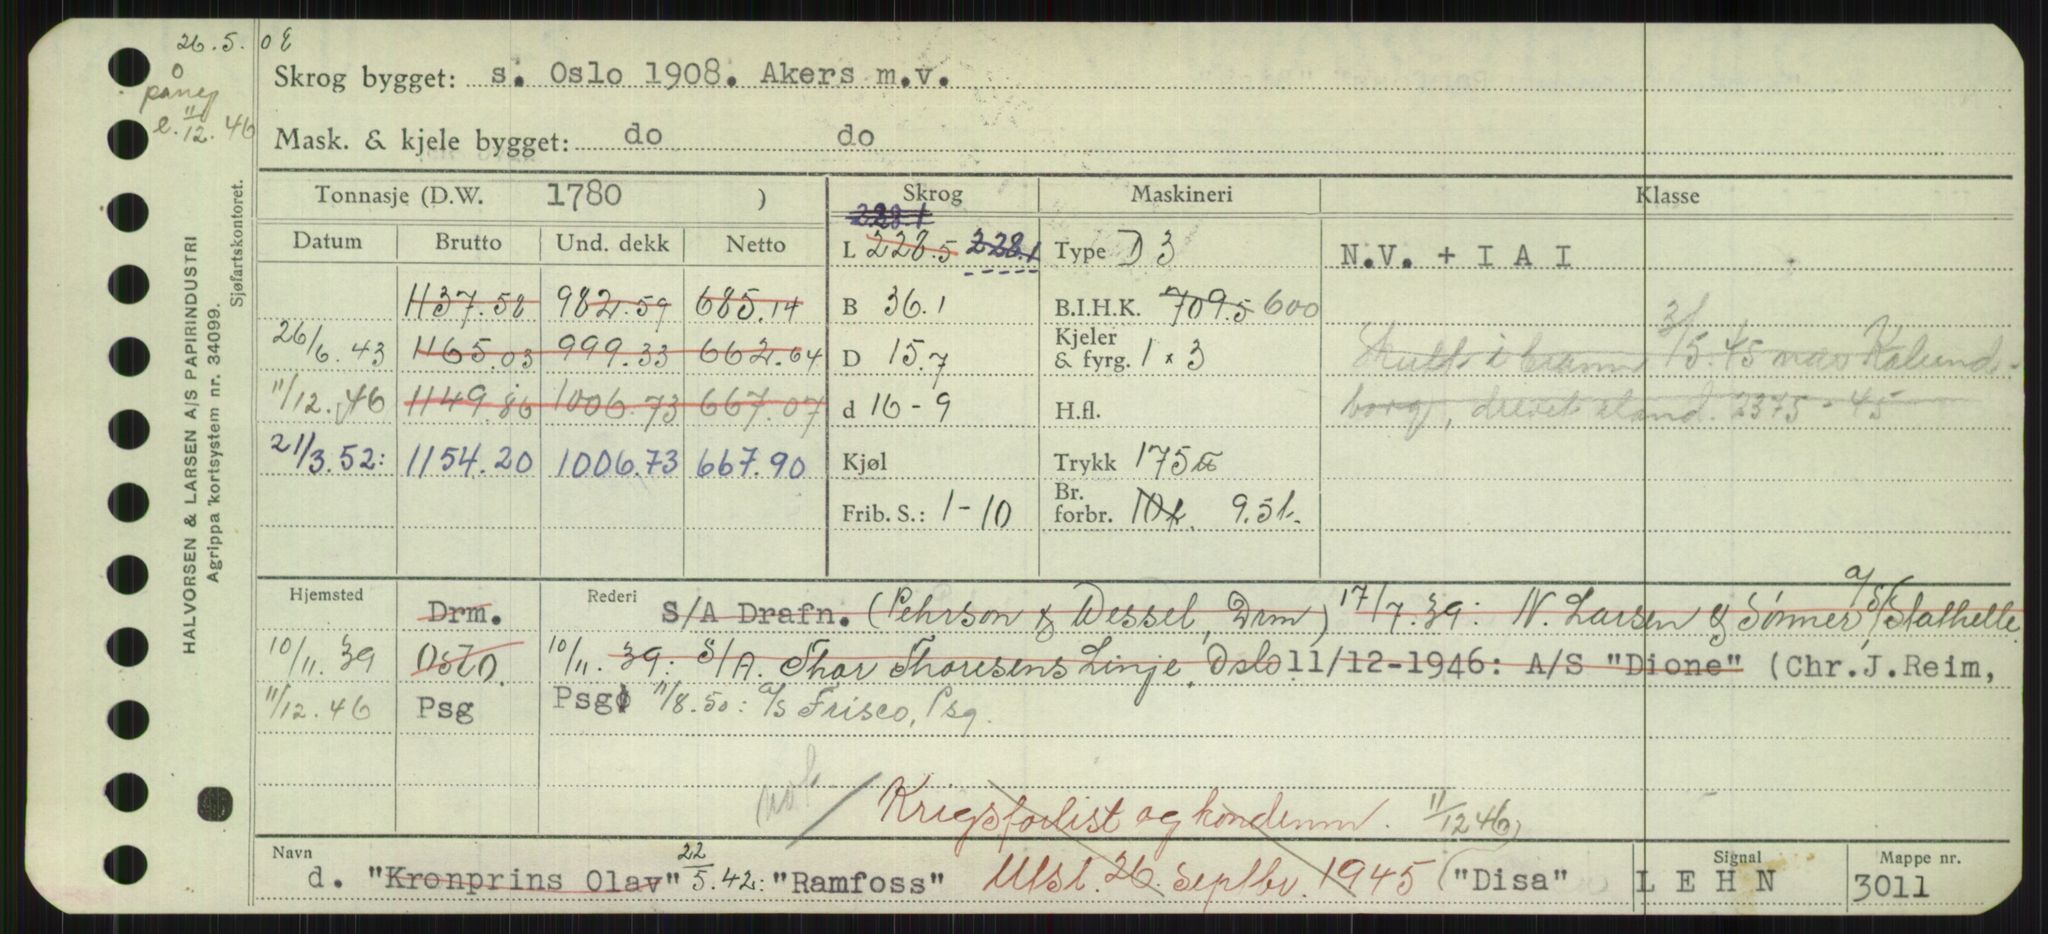 26.5. o E
Skrog bygget: s. Oslo 1908. Akers m.v.
e. 11/12. 46
Mask. & kjele bygget: do do
Tonnasje (D.W. 1780 ) Skrog Maskineri Klasse
228.1
Datum Brutto Und. dekk Netto L 228.5 228.1 Type D 3 N.V. + I A I
1137.58 982.59 685.14 B 36.1 B.I.H.K. 709.5 600
26/6.43 1165.03 999.33 662.64 D 15.7 Kjeler & fyrg. 1 x 3 i brann 3/5.45 nær Kalund-
11/12.46 1149.86 1006.73 667.07 d 16-9 H.fl. borg, drevet iland. 2375-45
21/3.52: 1154.20 1006.73 667.90 Kjøl Trykk 175
Frib. S.: 1-10 Br. forbr. 10t. 9.5t.
Hjemsted Drm. Rederi S/A Drafn. (Pehrson & Wessel, Drm) 17/7.39: N. Larsen & Sønner A/S, Stathelle.
10/11.39 Oslo. 10/11.39: S/A. Thor Thoresens Linje, Oslo 11/12-1946: A/S "Dione" (Chr.J.Reim,
11/12.46 Psg Psg) 11/8.50: A/S Frisco, Psg.
Krigsforlist og kondemn. 11/12 46)
Navn Signal Mappe nr.
d. "Kronprins Olav" 22/5.42: "Ramfoss" Utsl. 26. Septbr. 1945 ("Disa" L E H N 3011
HALVORSEN & LARSEN A/S PAPIRINDUSTRI
Agrippa kortsystem nr. 34099.
Sjøfartskontoret.